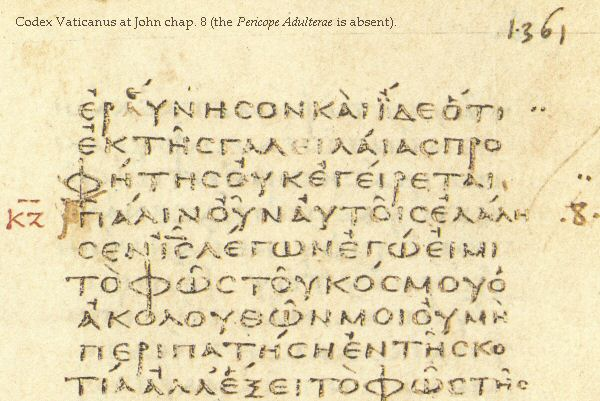 Codex Vaticanus at John chap. 8 (the Pericope Adulterae is absent).
1361
ἐραύνηϲονκαὶἴδεὅτι
ἐκτῆϲγαλειλαίαϲπρο
φήτηϲοὐκἐγείρεται
κζ πάλινοὖναὐτοῖϲἐλάλη ·8·
ϲενιϲλέγωνἐγώεἰμι
τὸφῶϲτοῦκόϲμουὁ
ἀκολουθῶνμοιοὐμὴ
περιπατήϲηἐντῆϲκο
τίαἀλλἕξειτὸφῶϲτῆϲ